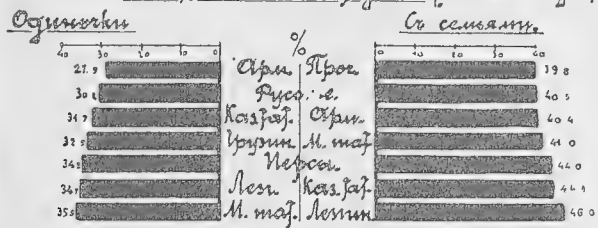 Одиночки Съ семьями.
40 30 20 10 0 % 0 10 20 30 40
27.9 Арм. Проч. 39.8
Русс. е. 40.5
Каз.тат. Арм. 40.4
32.5 Грузин. М. тат. 41.0
Персы. 44.0
Лезг. Каз.тат. 44.1
М. тат. Лезгин. 46.0